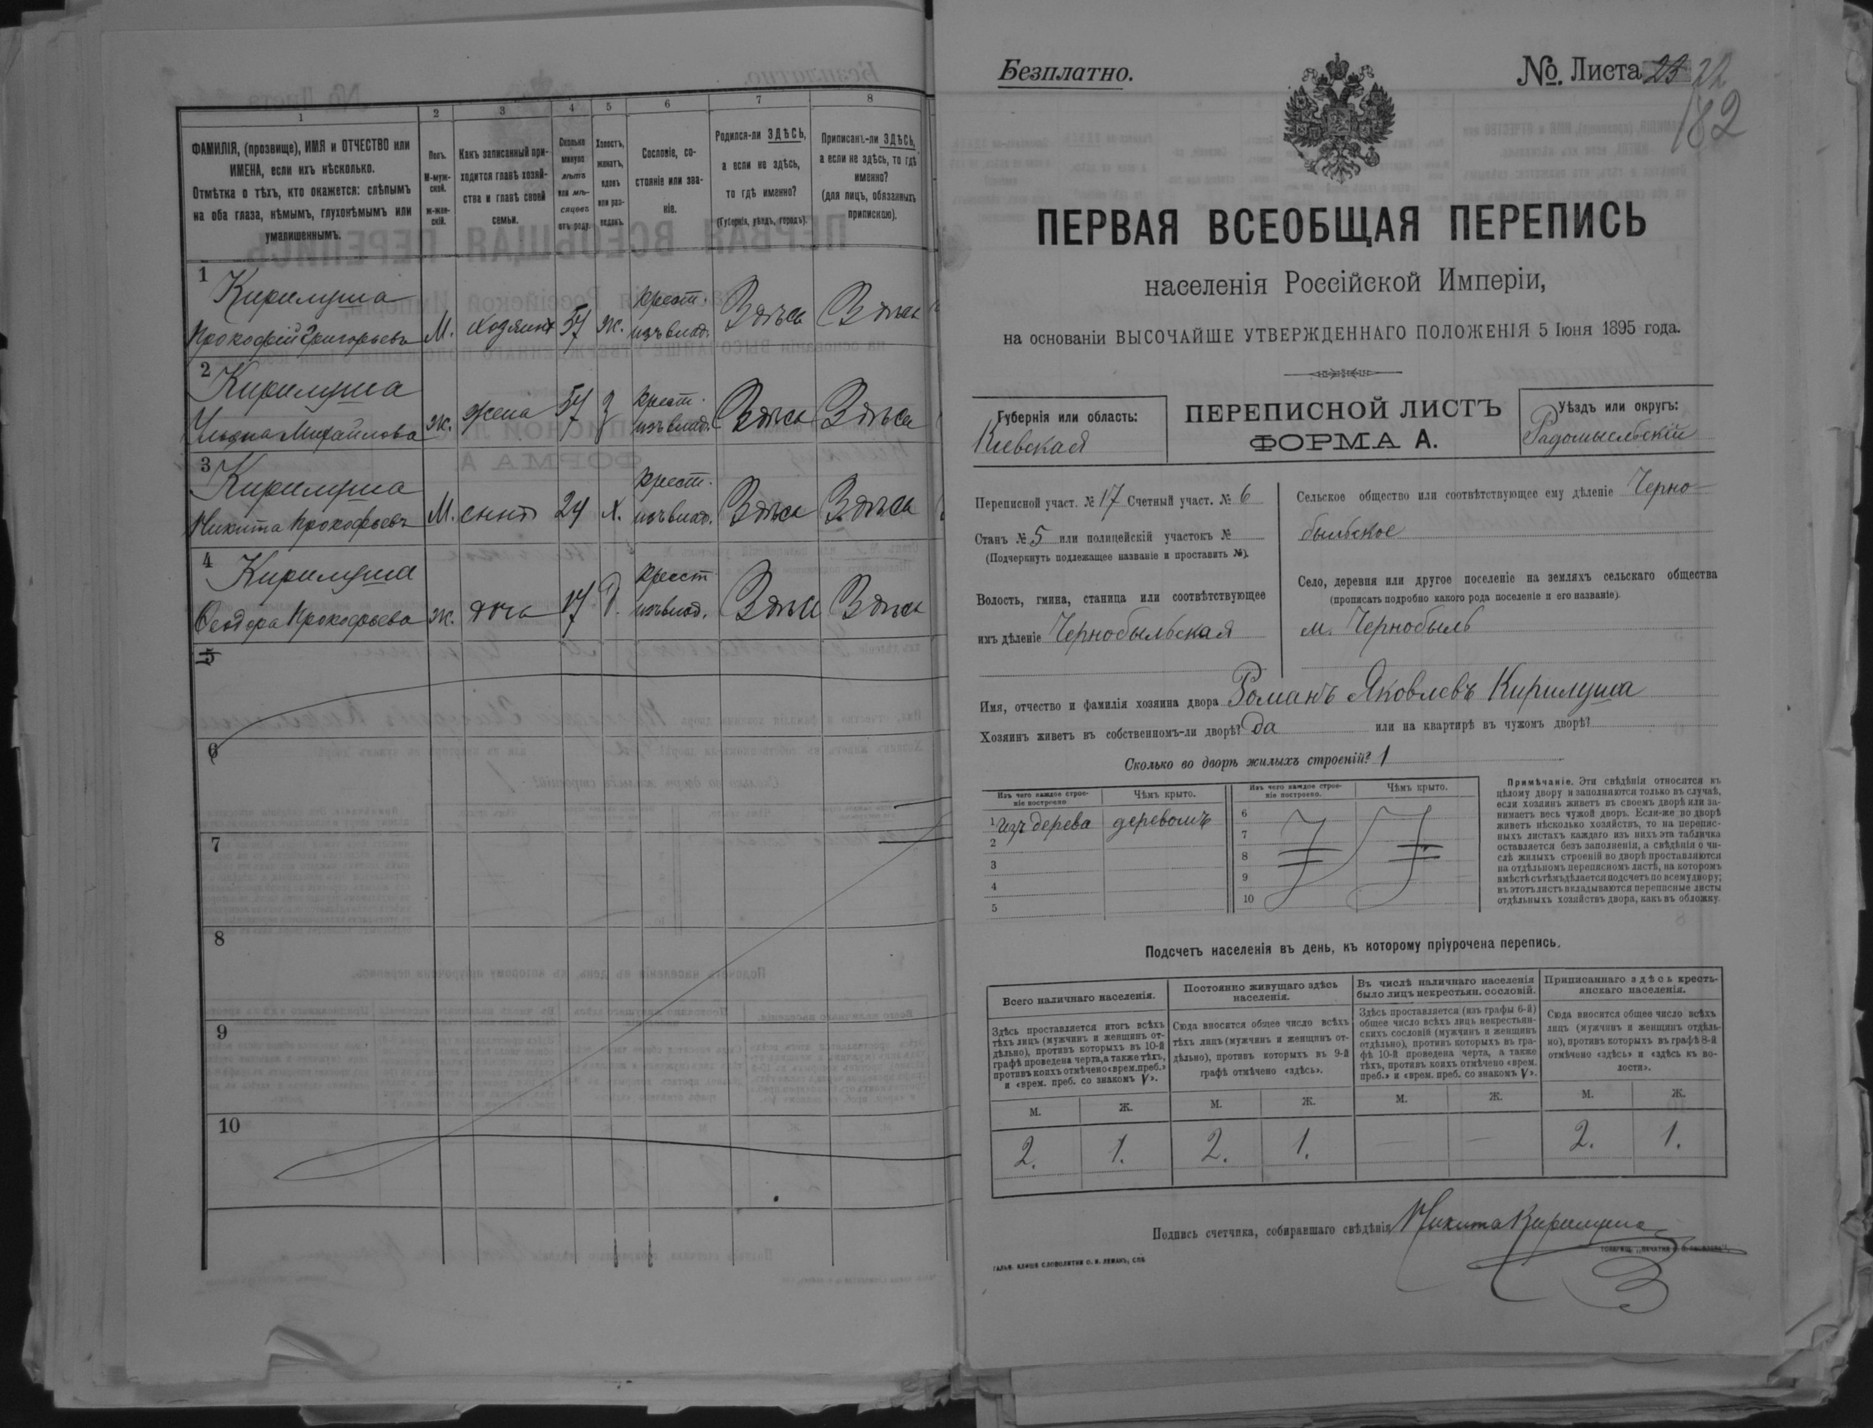 1
2
3
4
5
6
7
8
ФАМИЛІЯ, (прозвище), ИМЯ и ОТЧЕСТВО или
ИМЕНА, если ихъ нѣсколько.
Отмѣтка о тѣхъ, кто окажется: слѣпымъ
на оба глаза, нѣмымъ, глухонѣмымъ или
умалишеннымъ.
Полъ.
М-муж-
ской.
ж-жен-
скій.
Какъ записанный при-
ходится главѣ хозяй-
ства и главѣ своей
семьи.
Сколько
минуло
лѣтъ
или мѣ-
сяцевъ
отъ роду.
Холостъ,
женатъ,
вдовъ
или раз-
веденъ.
Сословіе, со-
стояніе или зва-
ніе.
Родился-ли ЗДѢСЬ,
а если не здѣсь,
то гдѣ именно?
(Губернія, уѣздъ, городъ).
Приписанъ-ли ЗДѢСЬ,
а если не здѣсь, то гдѣ
именно?
(для лицъ, обязанныхъ
припискою).
1
Кирилуша
Прокофій Григорьевъ М. хозяинъ 57 ж. крест. изъ влад. Здѣсь Здѣсь
2
Кирилуша
Михайлова ж. жена 57 З крест. изъ влад. Здѣсь Здѣсь
3
Кирилуша
Никита Прокофьевъ М. сынъ 24 х. крест. изъ влад. Здѣсь Здѣсь
4
Кирилуша
Ѳеодора Прокофьева ж. дочь 17 Д. крест изъ влад. Здѣсь Здѣсь
5
6
7
8
9
10
Безплатно.
№ Листа 23 22
182
ПЕРВАЯ ВСЕОБЩАЯ ПЕРЕПИСЬ
населенія Россійской Имперіи,
на основаніи ВЫСОЧАЙШЕ УТВЕРЖДЕННАГО ПОЛОЖЕНІЯ 5 Іюня 1895 года.
Губернія или область:
Кіевская
ПЕРЕПИСНОЙ ЛИСТЪ
ФОРМА А.
Уѣздъ или округъ:
Радомысльскій
Переписной участ. № 17 Счетный участ. № 6
Станъ № 5 или полицейскій участокъ №
(Подчеркнуть подлежащее названіе и проставить №).
Волость, гмина, станица или соотвѣтствующее
имъ дѣленіе Чернобыльская
Сельское общество или соотвѣтствующее ему дѣленіе Черно-
быльское
Село, деревня или другое поселеніе на земляхъ сельскаго общества
(прописать подробно какого рода поселеніе и его названіе).
м. Чернобыль
Имя, отчество и фамилія хозяина двора Романъ Яковлевъ Кирилуша
Хозяинъ живетъ въ собственномъ-ли дворѣ? Да или на квартирѣ въ чужомъ дворѣ?
Сколько во дворѣ жилыхъ строеній? 1
Изъ чего каждое строе-
ніе построено.
Чѣмъ крыто.
Изъ чего каждое строе-
ніе построено.
Чѣмъ крыто.
1 изъ дерева деревомъ
2
3
4
5
6
7
8
9
10
Примѣчаніе. Эти свѣдѣнія относятся къ
цѣлому двору и заполняются только въ случаѣ,
если хозяинъ живетъ въ своемъ дворѣ или за-
нимаетъ весь чужой дворъ. Если-же во дворѣ
живетъ нѣсколько хозяйствъ, то на перепис-
ныхъ листахъ каждаго изъ нихъ эта табличка
оставляется безъ заполненія, а свѣдѣнія о чи-
слѣ жилыхъ строеній во дворѣ проставляются
на отдѣльномъ переписномъ листѣ, на которомъ
вмѣстѣ съ тѣмъ дѣлается подсчетъ по всему двору;
въ этотъ листъ вкладываются переписные листы
отдѣльныхъ хозяйствъ двора, какъ въ обложку.
Подсчетъ населенія въ день, къ которому пріурочена перепись.
Всего наличнаго населенія.
Постоянно живущаго здѣсь
населенія.
Въ числѣ наличнаго населенія
было лицъ некрестьян. сословій.
Приписаннаго здѣсь кресть-
янскаго населенія.
Здѣсь проставляется итогъ всѣхъ
тѣхъ лицъ (мужчинъ и женщинъ от-
дѣльно), противъ которыхъ въ 10-й
графѣ проведена черта, а также тѣхъ,
противъ коихъ отмѣчено «врем. преб.»
и «врем. преб. со знакомъ V».
Сюда вносится общее число всѣхъ
тѣхъ лицъ (мужчинъ и женщинъ от-
дѣльно), противъ которыхъ въ 9-й
графѣ отмѣчено «здѣсь».
Здѣсь проставляется (изъ графы 6-й)
общее число всѣхъ лицъ некрестьян-
скихъ сословій (мужчинъ и женщинъ
отдѣльно), противъ которыхъ въ гра-
фѣ 10-й проведена черта, а также
тѣхъ, противъ коихъ отмѣчено «врем.
преб.» и «врем. преб. со знакомъ V».
Сюда вносится общее число всѣхъ
лицъ (мужчинъ и женщинъ отдѣль-
но), противъ которыхъ въ графѣ 8-й
отмѣчено «здѣсь» и «здѣсь къ во-
лости».
М. Ж. М. Ж. М. Ж. М. Ж.
2. 1. 2. 1. — — 2. 1.
Подпись счетчика, собиравшаго свѣдѣнія Никита Кирилуша